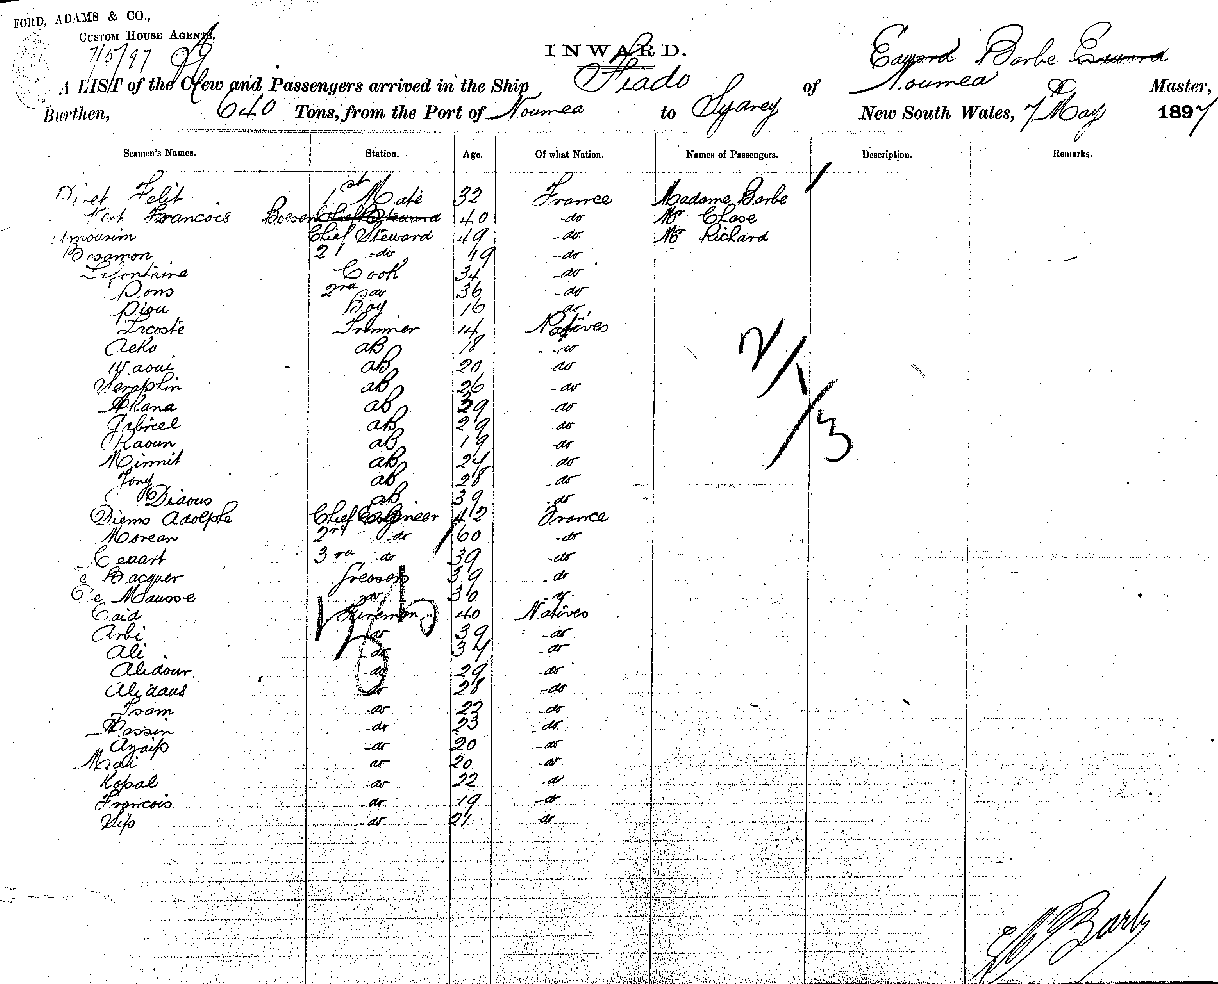 FORD, ADAMS & CO.,
CUSTOM HOUSE AGENTS.
7/5/97
INWARD.
Edward Barbe
A LIST of the Crew and Passengers arrived in the Ship Fiado of Noumea Master,
Burthen, 640 Tons, from the Port of Noumea to Sydney New South Wales, 7 May 1897
Seamen's Names. Station. Age. Of what Nation. Names of Passengers. Description. Remarks.
Felit 1st Mate 32 France Madame Barbe
Francois Boson 40 do Mr Chase
Chief Steward 49 do Mr Richard
Besamon 2 do 49 do
Lefontaine Cook 34 do
Pons 2nd do 36 do
Piou Boy 16 do
Lecoste Trimmer 14 Natives
Aeko ab 18 do
ab 20 do
Seraphin ab 26 do
Akana ab 29 do
Gabriel ab 29 do
Kaoun ab 19 do
Minmit ab 24 do
Tony ab 28 do
Diaous ab 39 do
Diems Adolphe Chief Engineer 42 France
Morean 2nd do 60 do
3rd do 39 do
Bacquer Greaser 39 do
De Mausse do 30 do
Caid Fireman 40 Natives
Arbi do 39 do
Ali do 34 do
Alidour do 29 do
Alidaus do 28 do
Isam do 22 do
Hassen do 23 do
Azaip do 20 do
do 20 do
Kopal do 22 do
Francois do 19 do
do 21 do
2/1/3
Barbe